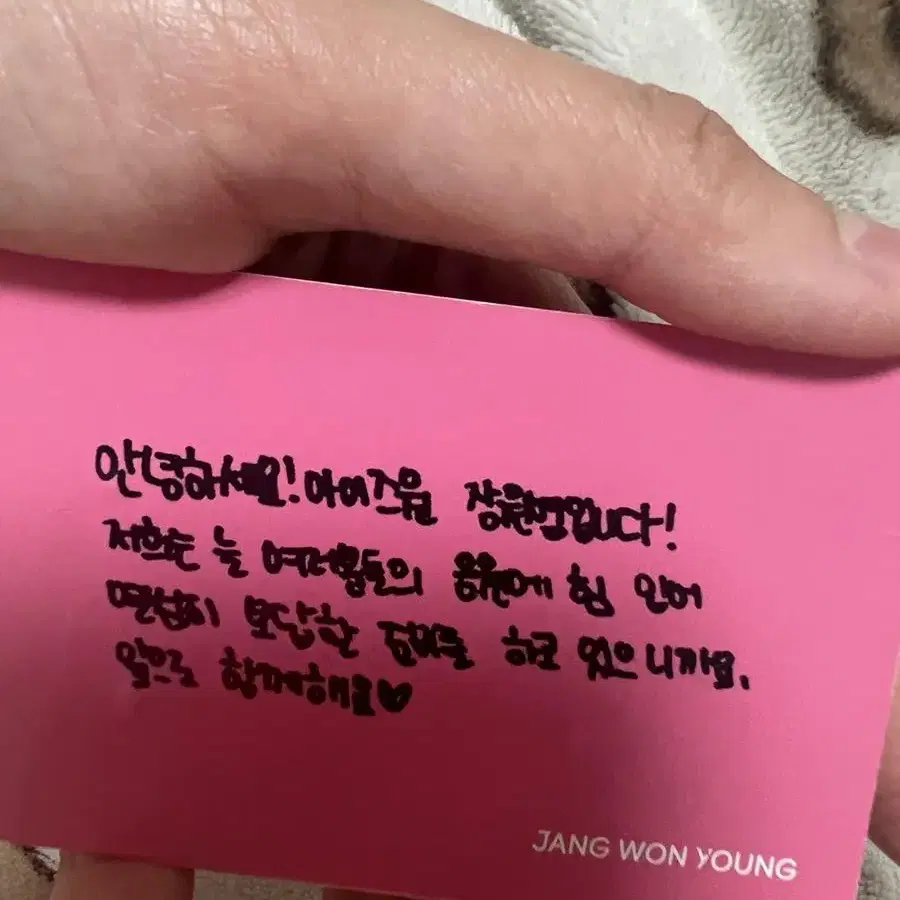 안녕하세요! 아이즈원 장원영입니다!
저희는 늘 여러분들의 응원에 힘 입어
열심히 보답할 준비를 하고 있으니까요.
앞으로 함께해요♥
JANG WON YOUNG